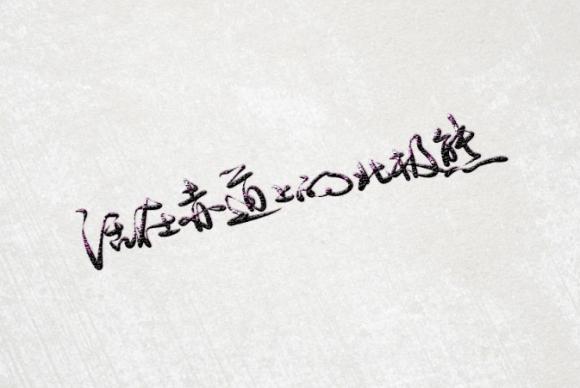 活在赤道上的北极熊